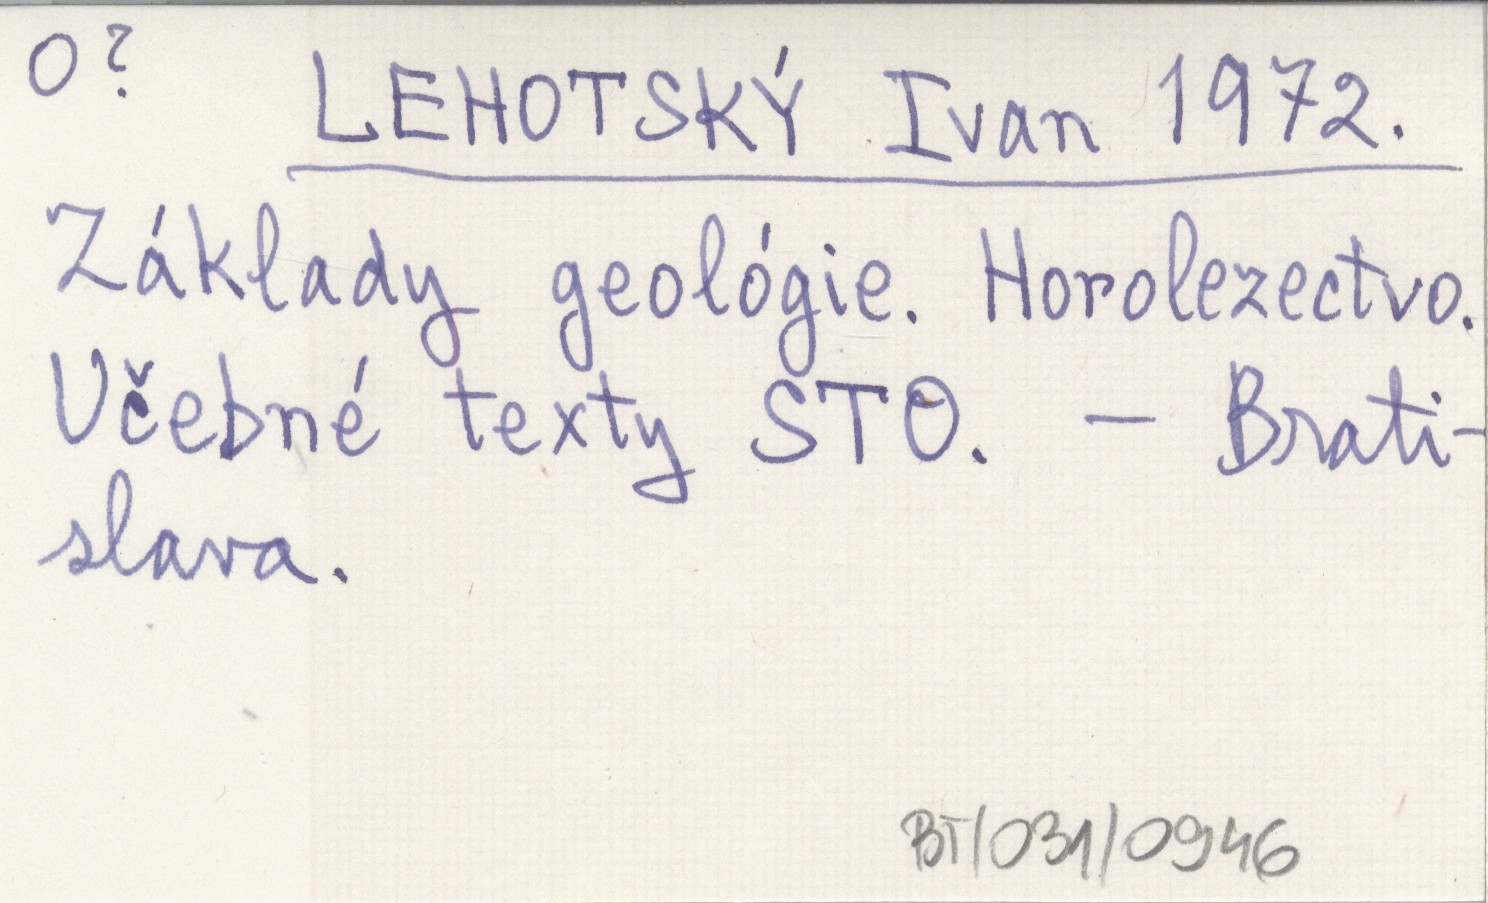 O?
LEHOTSKÝ Ivan 1972.
Základy geológie. Horolezectvo.
Učebné texty STO. — Brati-
slava.
BT/031/0946